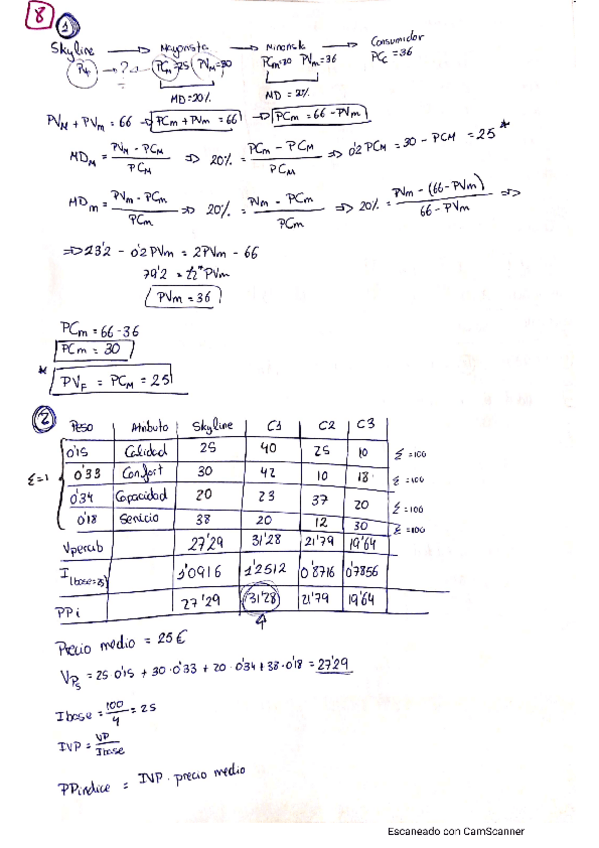 8
1
Skyline → Mayorista → Minorista → Consumidor
PVf → ? → PCM=25 PVM=30 PCm=30 PVm=36 PCc=36
MD=20% MD=20%
PVM + PVm = 66 → PCm + PVm = 66 → PCm = 66 - PVm
MDM = PVM - PCM / PCM ⇒ 20% = PCm - PCM / PCM ⇒ 0'2 PCM = 30 - PCM = 25 *
MDm = PVm - PCm / PCm ⇒ 20% = PVm - PCm / PCm ⇒ 20% = PVm - (66 - PVm) / 66 - PVm ⇒
⇒ 13'2 - 0'2 PVm = 2PVm - 66
79'2 = 2'2 PVm
PVm = 36
PCm = 66 - 36
PCm = 30
* PVF = PCM = 25
2
Peso Atributo Skyline C1 C2 C3
0'15 Calidad 25 40 25 10 Σ=100
Σ=1 0'33 Confort 30 42 10 18 Σ=100
0'34 Capacidad 20 23 37 20 Σ=100
0'18 Servicio 38 20 12 30 Σ=100
Vpercib 27'29 31'28 21'79 19'64
I (base=25) 1'0916 1'2512 0'8716 0'7856
PPi 27'29 31'28 21'79 19'64
Precio medio = 25€
VPs = 25·0'15 + 30·0'33 + 20·0'34 + 38·0'18 = 27'29
Ibase = 100 / 4 = 25
IVP = VP / Ibase
PPindice = IVP · precio medio
Escaneado con CamScanner